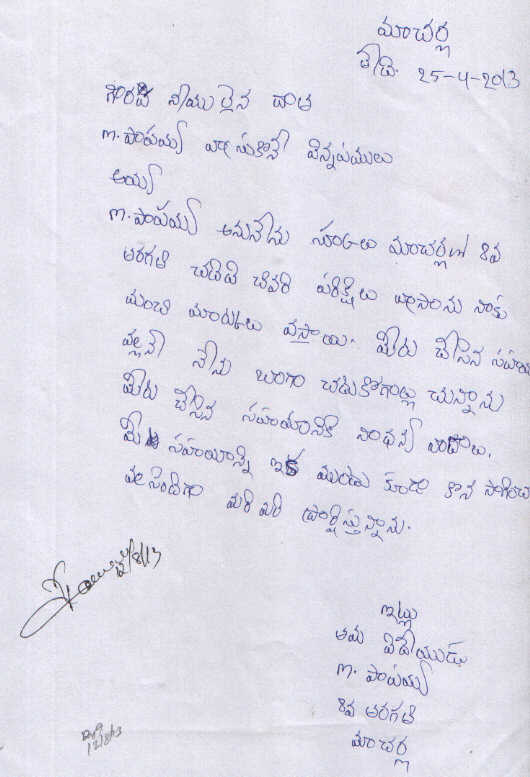 మాచర్ల
తేది. 25-4-2013
గౌరవ నీయులైన దాత
m. పాపయ్య వ్రాసుకొనే విన్నపములు
అయ్య
m. పాపయ్య అనునేను సూరలు మాంచర్లలో 8వ
తరగతి చదివి చివరి పరిక్షలు వ్రాసాను నాకు
మంచి మార్కులు వస్తాయి. మీరు చేసిన సహాయ
వల్లనే నేను బాగా చదుకోగల్గు చున్నాను
మీరు చేసిన సహయానికి నాధన్య వాదాలు.
మీ సహయాన్ని ఇక ముందు కూడా కొన సాగించ
వలసిందిగా మరిమరి ప్రార్థిస్తున్నాను.
12/8/13
ఇట్లు
తమ విదేయుడు
m. పాపయ్య
8వ తరగతి
మాచర్ల
12/8/13